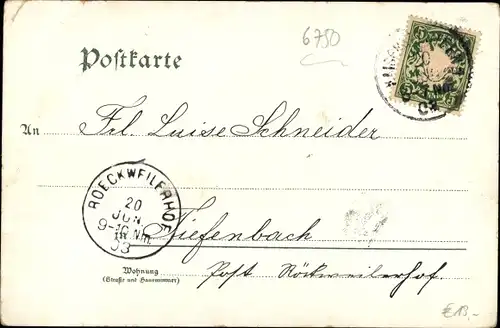 6750
Postkarte
An Frl. Luise Schneider
ROECKWEILERHOF
20
JUN.
03
Tiefenbach
Post Röckweilerhof
Wohnung
(Straße und Hausnummer)
€13,-